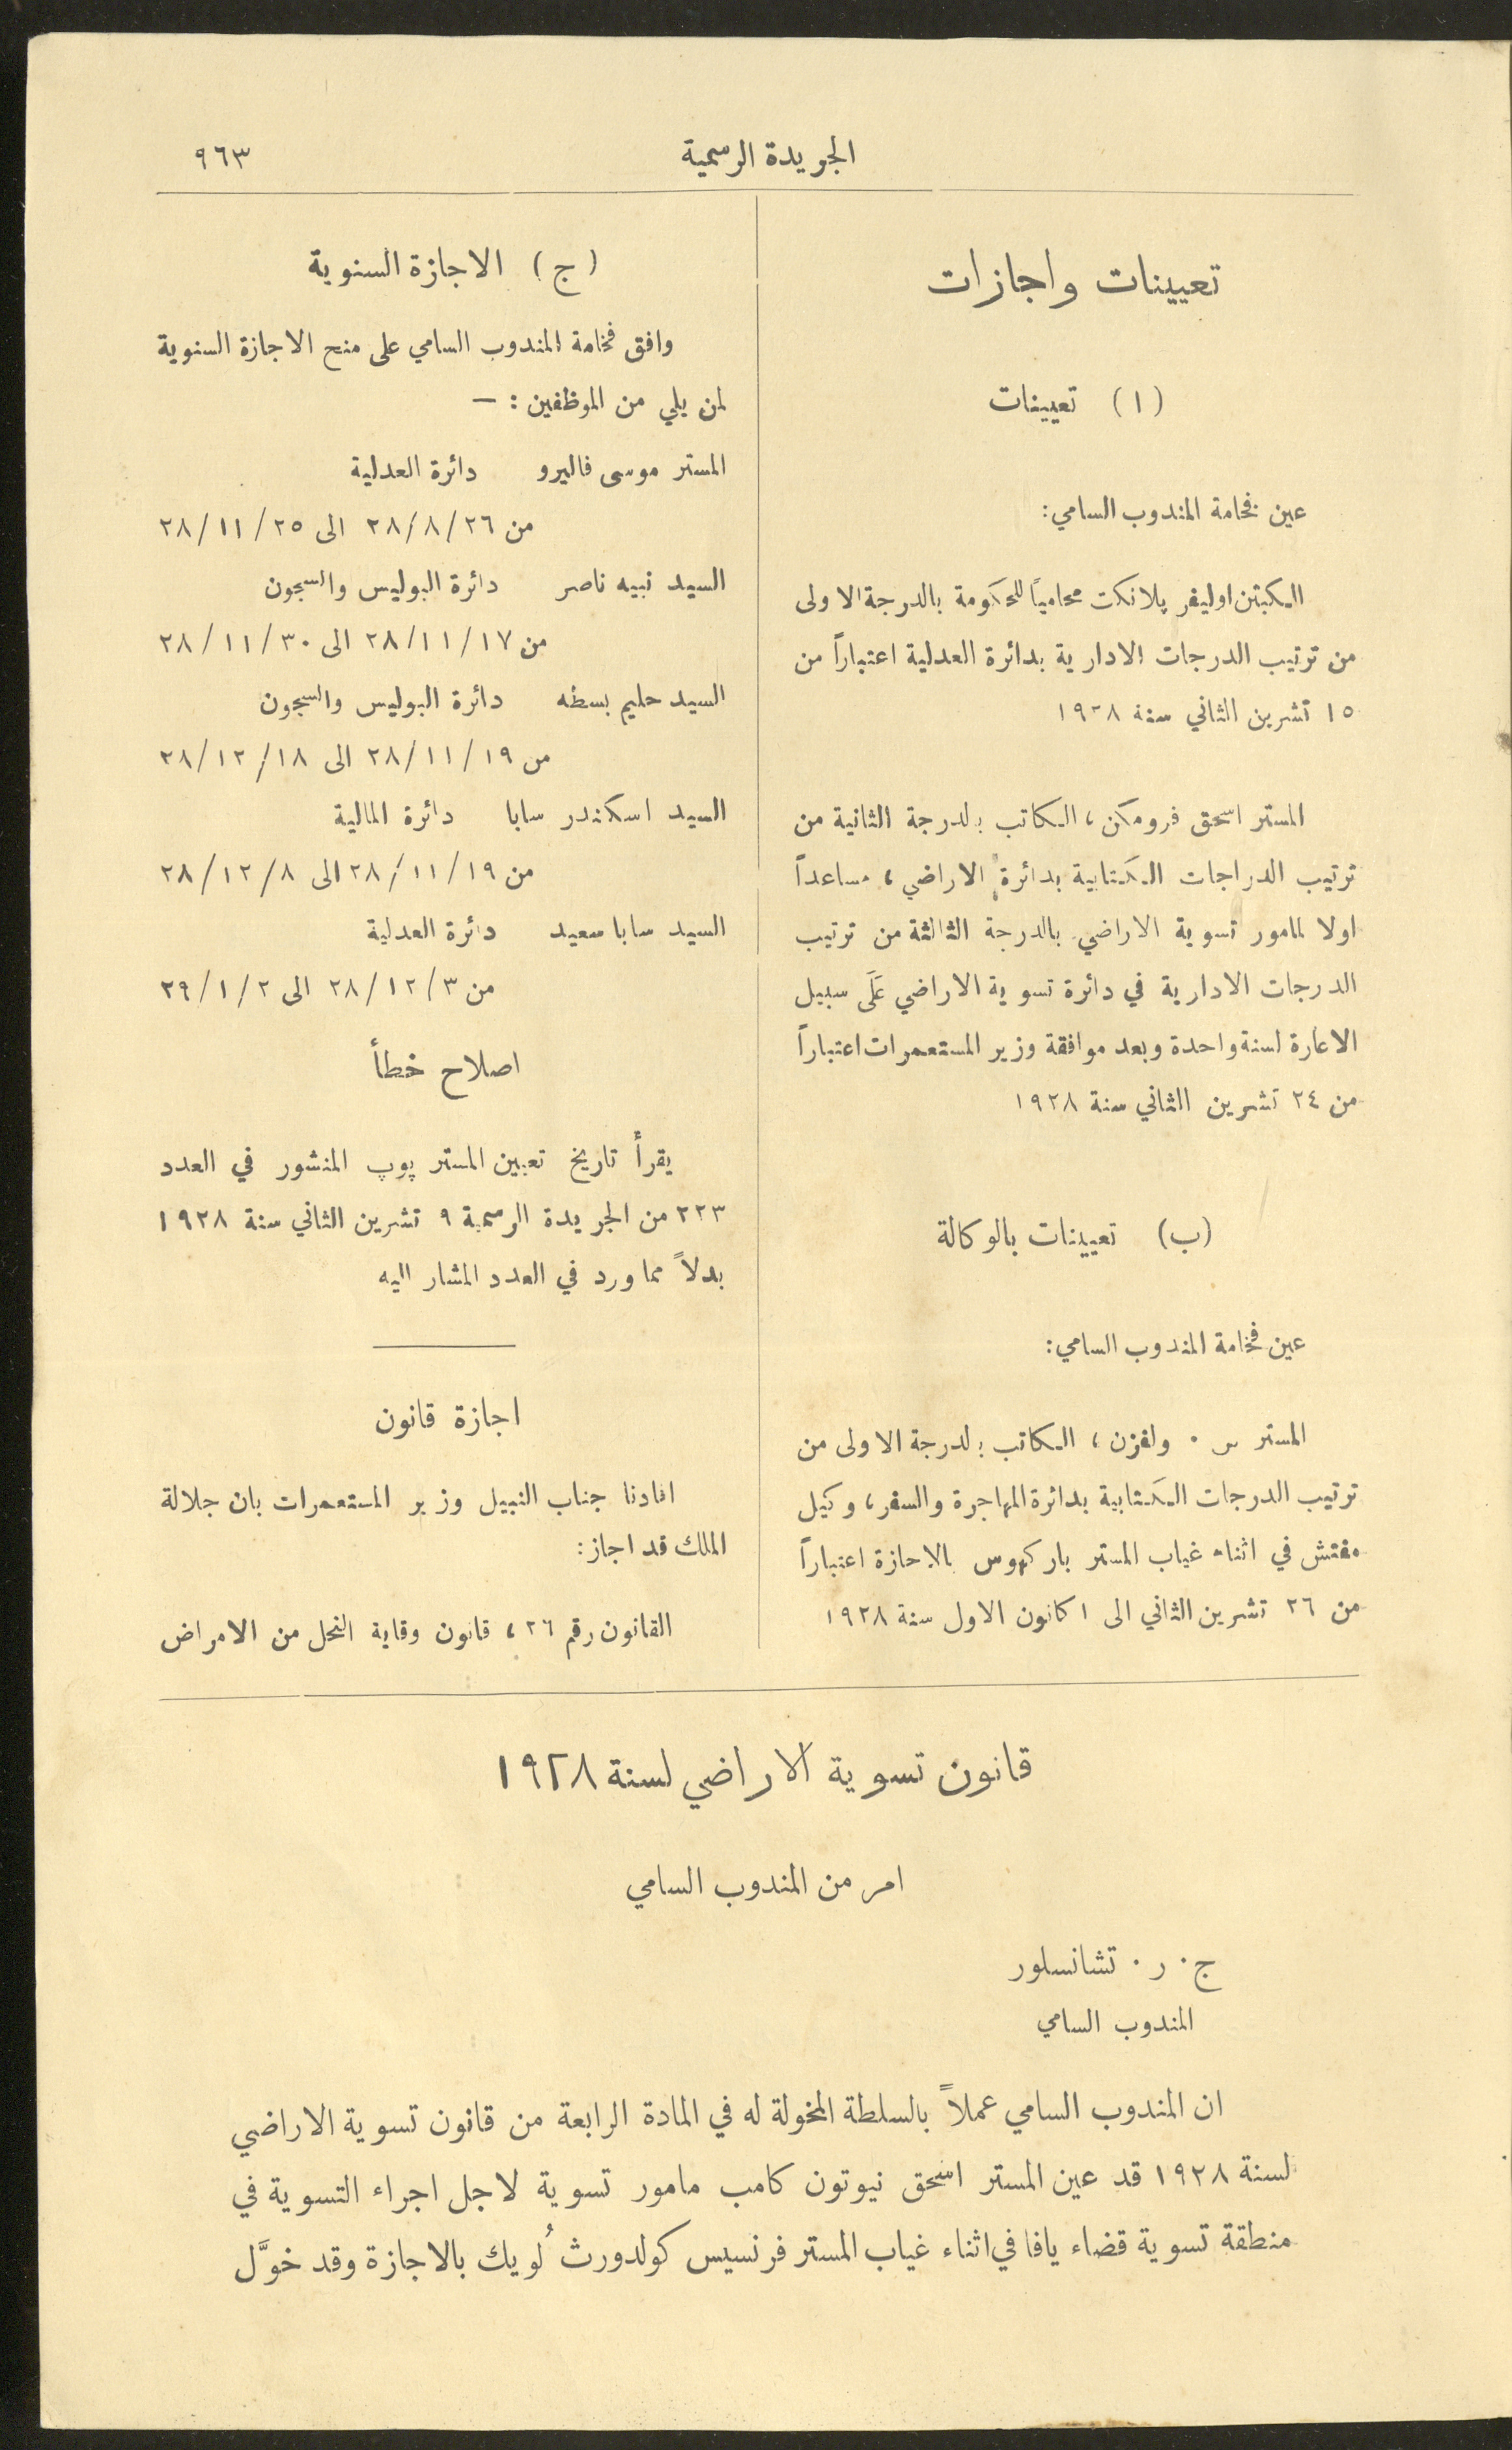 الجريدة الرسمية
٩٦٣
تعيينات واجازات
(ا) تعيينات
عين فخامة المندوب السامي:
الكبتن اوليفر پلانكت محامياً للحكومة بالدرجة الاولى
من ترتيب الدرجات الادارية بدائرة العدلية اعتباراً من
١٥ تشرين الثاني سنة ١٩٢٨
المستر اسحق فرومكن، الكاتب بالدرجة الثانية من
ترتيب الدراجات الكتابية بدائرة الاراضي، مساعداً
اولا لمامور تسوية الاراضي بالدرجة الثالثة من ترتيب
الدرجات الادارية في دائرة تسوية الاراضي عَلَى سبيل
الاعارة لسنة واحدة وبعد موافقة وزير المستعمرات اعتباراً
من ٢٤ تشرين الثاني سنة ١٩٢٨
(ب) تعيينات بالوكالة
عين فخامة المندوب السامي:
المستر س. ولفزن، الكاتب بالدرجة الاولى من
ترتيب الدرجات الكتابية بدائرة المهاجرة والسفر، وكيل
مفتش في اثناء غياب المستر باركهوس بالاجازة اعتباراً
من ٢٦ تشرين الثاني الى ١ كانون الاول سنة ١٩٢٨
(ج) الاجازة السنوية
وافق فخامة المندوب السامي على منح الاجازة السنوية
لمن يلي من الموظفين: —
المستر موسى فاليرو دائرة العدلية
من ٢٨/٨/٢٦ الى ٢٨/١١/٢٥
السيد نبيه ناصر دائرة البوليس والسجون
من ٢٨/١١/١٧ الى ٢٨/١١/٣٠
السيد حليم بسطه دائرة البوليس والسجون
من ٢٨/١١/١٩ الى ٢٨/١٢/١٨
السيد اسكندر سابا دائرة المالية
من ٢٨/١١/١٩ الى ٢٨/١٢/٨
السيد سابا سعيد دائرة العدلية
من ٢٨/١٢/٣ الى ٢٩/١/٢
اصلاح خطأ
يقرأ تاريخ تعيين المستر پوپ المنشور في العدد
٢٢٣ من الجريدة الرسمية ٩ تشرين الثاني سنة ١٩٢٨
بدلاً مما ورد في العدد المشار اليه
اجازة قانون
افادنا جناب النبيل وزير المستعمرات بان جلالة
الملك قد اجاز:
القانون رقم ٢٦، قانون وقاية النحل من الامراض
قانون تسوية الاراضي لسنة ١٩٢٨
امر من المندوب السامي
ج. ر. تشانسلور
المندوب السامي
ان المندوب السامي عملاً بالسلطة المخولة له في المادة الرابعة من قانون تسوية الاراضي
لسنة ١٩٢٨ قد عين المستر اسحق نيوتون كامب مامور تسوية لاجل اجراء التسوية في
منطقة تسوية قضاء يافا في اثناء غياب المستر فرنسيس كولدورث لُويك بالاجازة وقد خوَّل